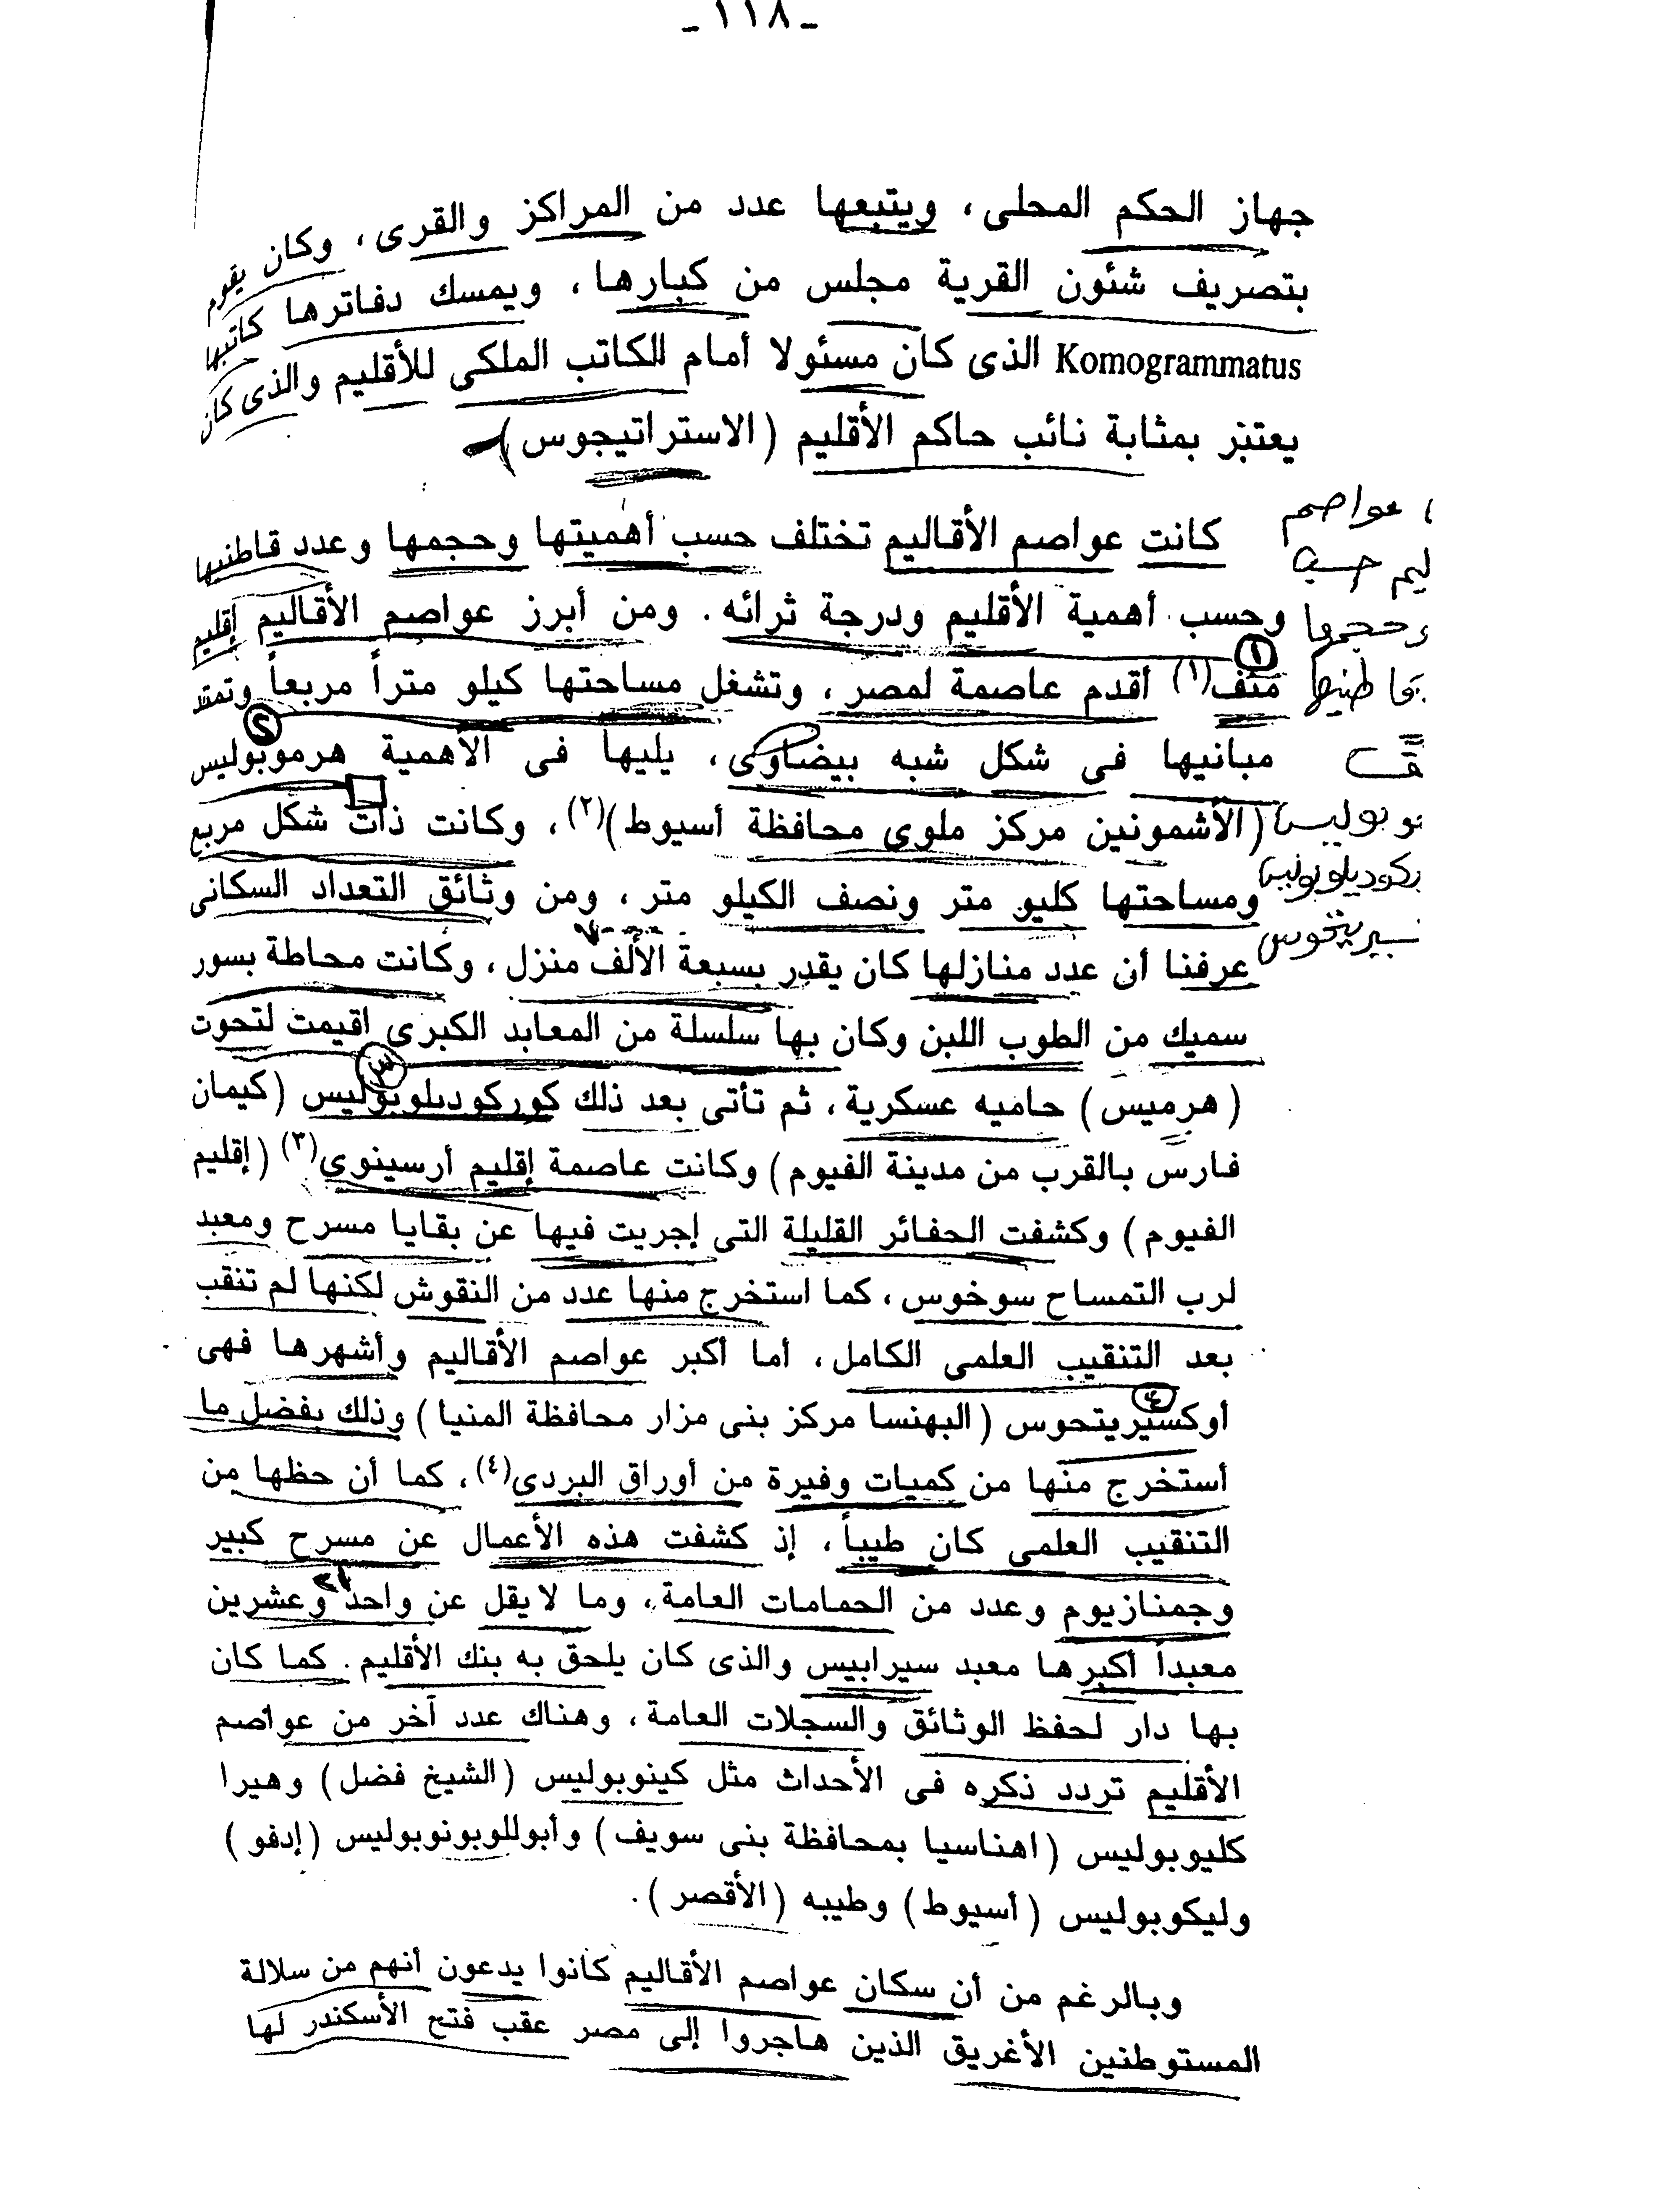 ـ ١١٨ ـ
جهاز الحكم المحلى ، ويتبعها عدد من المراكز والقرى ، وكان يقوم
بتصريف شئون القرية مجلس من كبارها ، ويمسك دفاترها كاتبها
Komogrammatus الذى كان مسئولا أمام للكاتب الملكى للأقليم والذى كان
يعتبر بمثابة نائب حاكم الأقليم (الاستراتيجوس)
كانت عواصم الأقاليم تختلف حسب أهميتها وحجمها وعدد قاطنيها
وحسب أهمية الأقليم ودرجة ثرائه . ومن أبرز عواصم الأقاليم إقليم
منف(١) أقدم عاصمة لمصر ، وتشغل مساحتها كيلو متراً مربعاً وتمتد
مبانيها فى شكل شبه بيضاوى ، يليها فى الأهمية هرموبوليس
(الأشمونين مركز ملوى محافظة أسيوط)(٢) ، وكانت ذات شكل مربع
ومساحتها كليو متر ونصف الكيلو متر ، ومن وثائق التعداد السكانى
عرفنا أن عدد منازلها كان يقدر بسبعة الألف منزل ، وكانت محاطة بسور
سميك من الطوب اللبن وكان بها سلسلة من المعابد الكبرى اقيمت لتحوت
(هرميس) حاميه عسكرية ، ثم تأتى بعد ذلك كوركوديلوبوليس (كيمان
فارس بالقرب من مدينة الفيوم) وكانت عاصمة إقليم أرسينوى(٣) (إقليم
الفيوم) وكشفت الحفائر القليلة التى إجريت فيها عن بقايا مسرح ومعبد
لرب التمساح سوخوس ، كما استخرج منها عدد من النقوش لكنها لم تنقب
بعد التنقيب العلمى الكامل ، أما أكبر عواصم الأقاليم وأشهرها فهى
أوكسيريتحوس (البهنسا مركز بنى مزار محافظة المنيا) وذلك بفضل ما
أستخرج منها من كميات وفيرة من أوراق البردى(٤) ، كما أن حظها من
التنقيب العلمى كان طيباً ، إذ كشفت هذه الأعمال عن مسرح كبير
وجمنازيوم وعدد من الحمامات العامة ، وما لا يقل عن واحد وعشرين
معبداً أكبرها معبد سيرابيس والذى كان يلحق به بنك الأقليم . كما كان
بها دار لحفظ الوثائق والسجلات العامة ، وهناك عدد آخر من عواصم
الأقليم تردد ذكره فى الأحداث مثل كينوبوليس (الشيخ فضل) وهيرا
كليوبوليس (اهناسيا بمحافظة بنى سويف) وأبوللوبونوبوليس (إدفو)
وليكوبوليس (أسيوط) وطيبه (الأقصر) .
وبالرغم من أن سكان عواصم الأقاليم كانوا يدعون أنهم من سلالة
المستوطنين الأغريق الذين هاجروا إلى مصر عقب فتح الأسكندر لها
عواصم
حسب
وحجمها